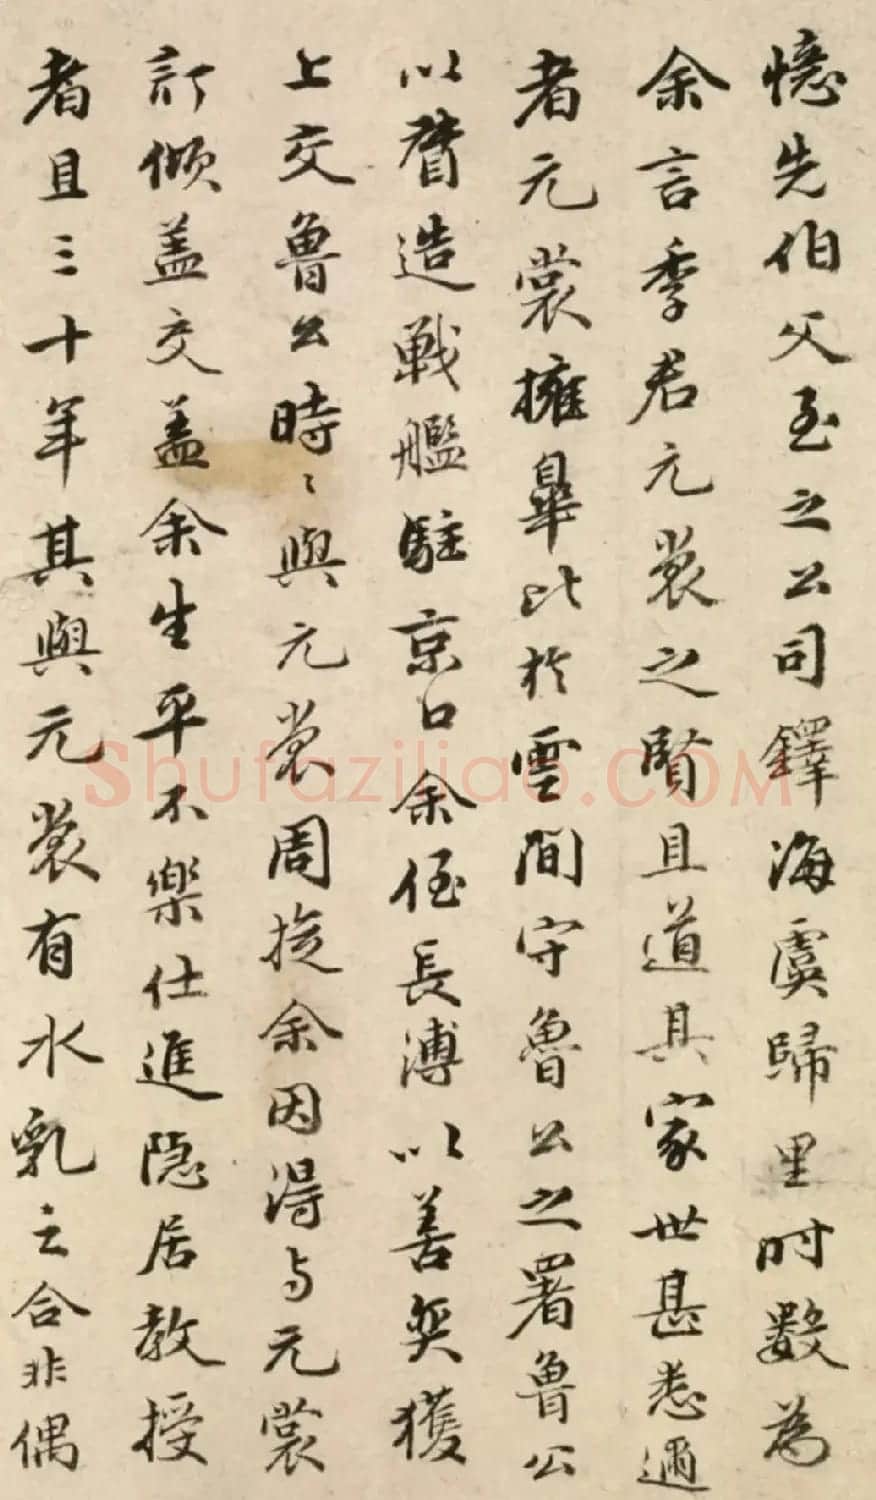 憶先伯父至之公司鐸海虞歸里时数為
余言季君元裳之賢且道其家世甚悉迩
者元裳擁皐比於雲間守魯公之署魯公
以督造戦艦駐京口余侄長溥以善奕獲
上交魯公時〻與元裳周旋余因淂与元裳
訂傾盖交盖余生平不樂仕進隐居教授
者且三十年其與元裳有水乳之合非偶
Shufaziliao.COM